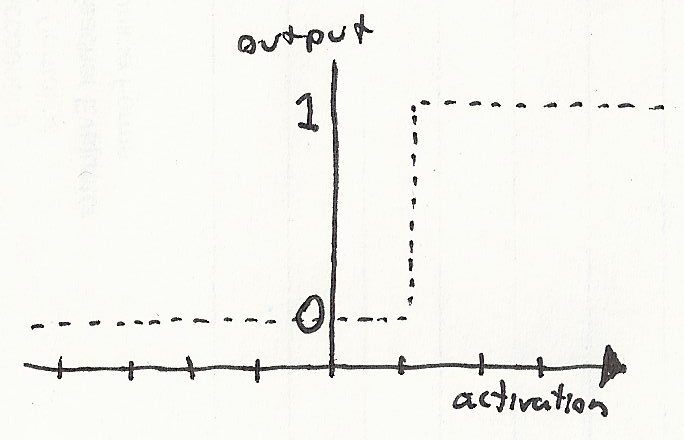 output
1
0
activation